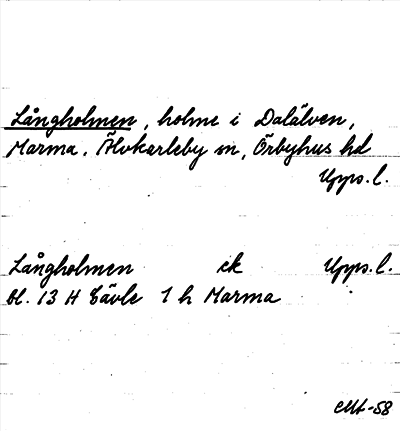 Långholmen, holme i Dalälven,
Marma, Älvkarleby sn, Örbyhus hd
Upps.l.
Långholmen ek Upps.l.
bl. 13 H Gävle 1 h Marma
-58